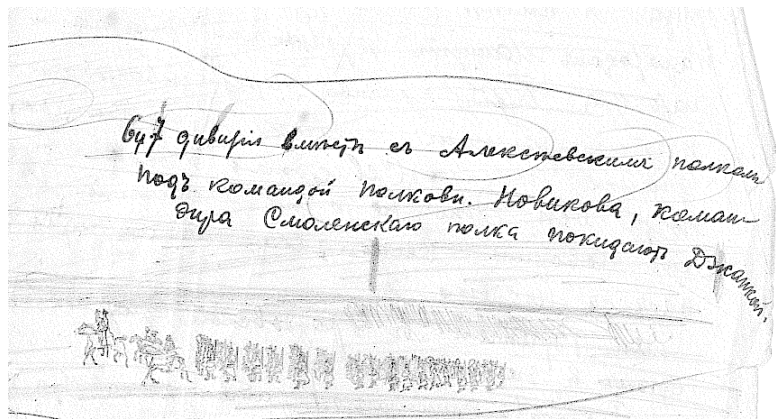 6 и 7 дивизіи вмѣстѣ съ Алексѣевскимъ полкомъ
подъ командой полковн. Новикова, коман-
дира Смоленскаго полка покидаютъ Джанкой.